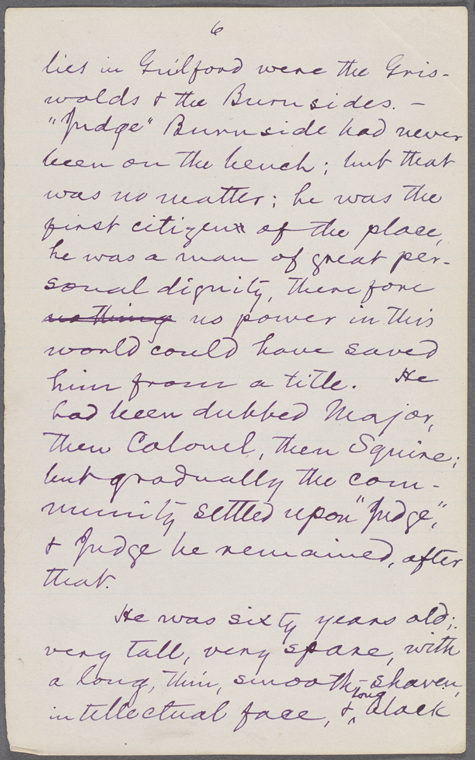 6
lies in Guilford were the Gris-
wolds & the Burnsides. —
"Judge" Burnside had never
been on the bench; but that
was no matter; he was the
first citizen of the place,
he was a man of great per-
sonal dignity, therefore
nothing no power in this
world could have saved
him from a title. He
had been dubbed Major,
then Colonel, then Squire;
but gradually the com-
munity settled upon "Judge",
& Judge he remained, after
that.
He was sixty years old;
very tall, very spare, with
a long, thin, smooth-shaven,
intellectual face, & long black